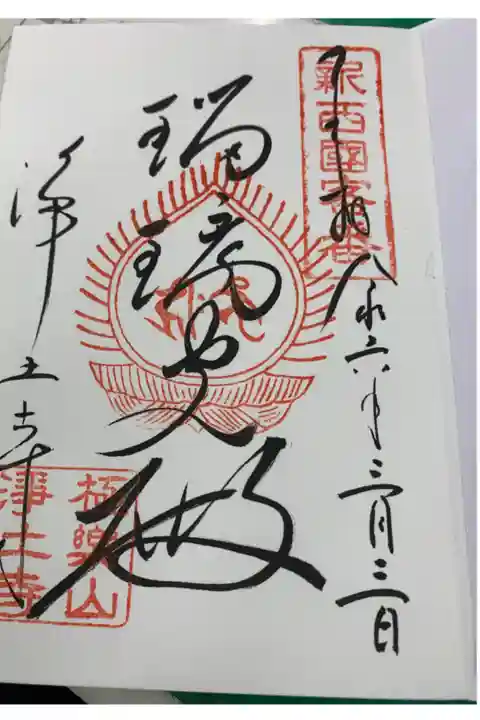 新西國客番
奉拝 令和六年三月三日
瑠璃光殿
浄土寺
極樂山
淨土寺